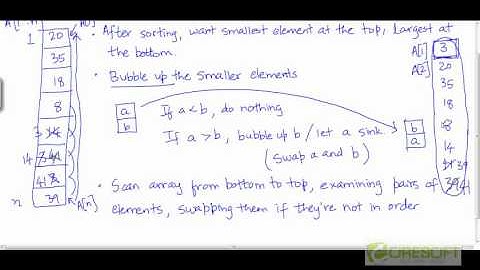 A[1..n]
A[1]
1
20
35
18
8
14
n
39
A[n]
• After sorting, want smallest element at the top, largest at
the bottom.
• Bubble up the smaller elements
a
b
If a<b, do nothing
If a>b, bubble up b / let a sink.
(swap a and b)
b
a
• Scan array from bottom to top, examining pairs of
elements, swapping them if they're not in order
A[1] 3
A[2] 20
35
18
8
14
39
41
CIRESOFT